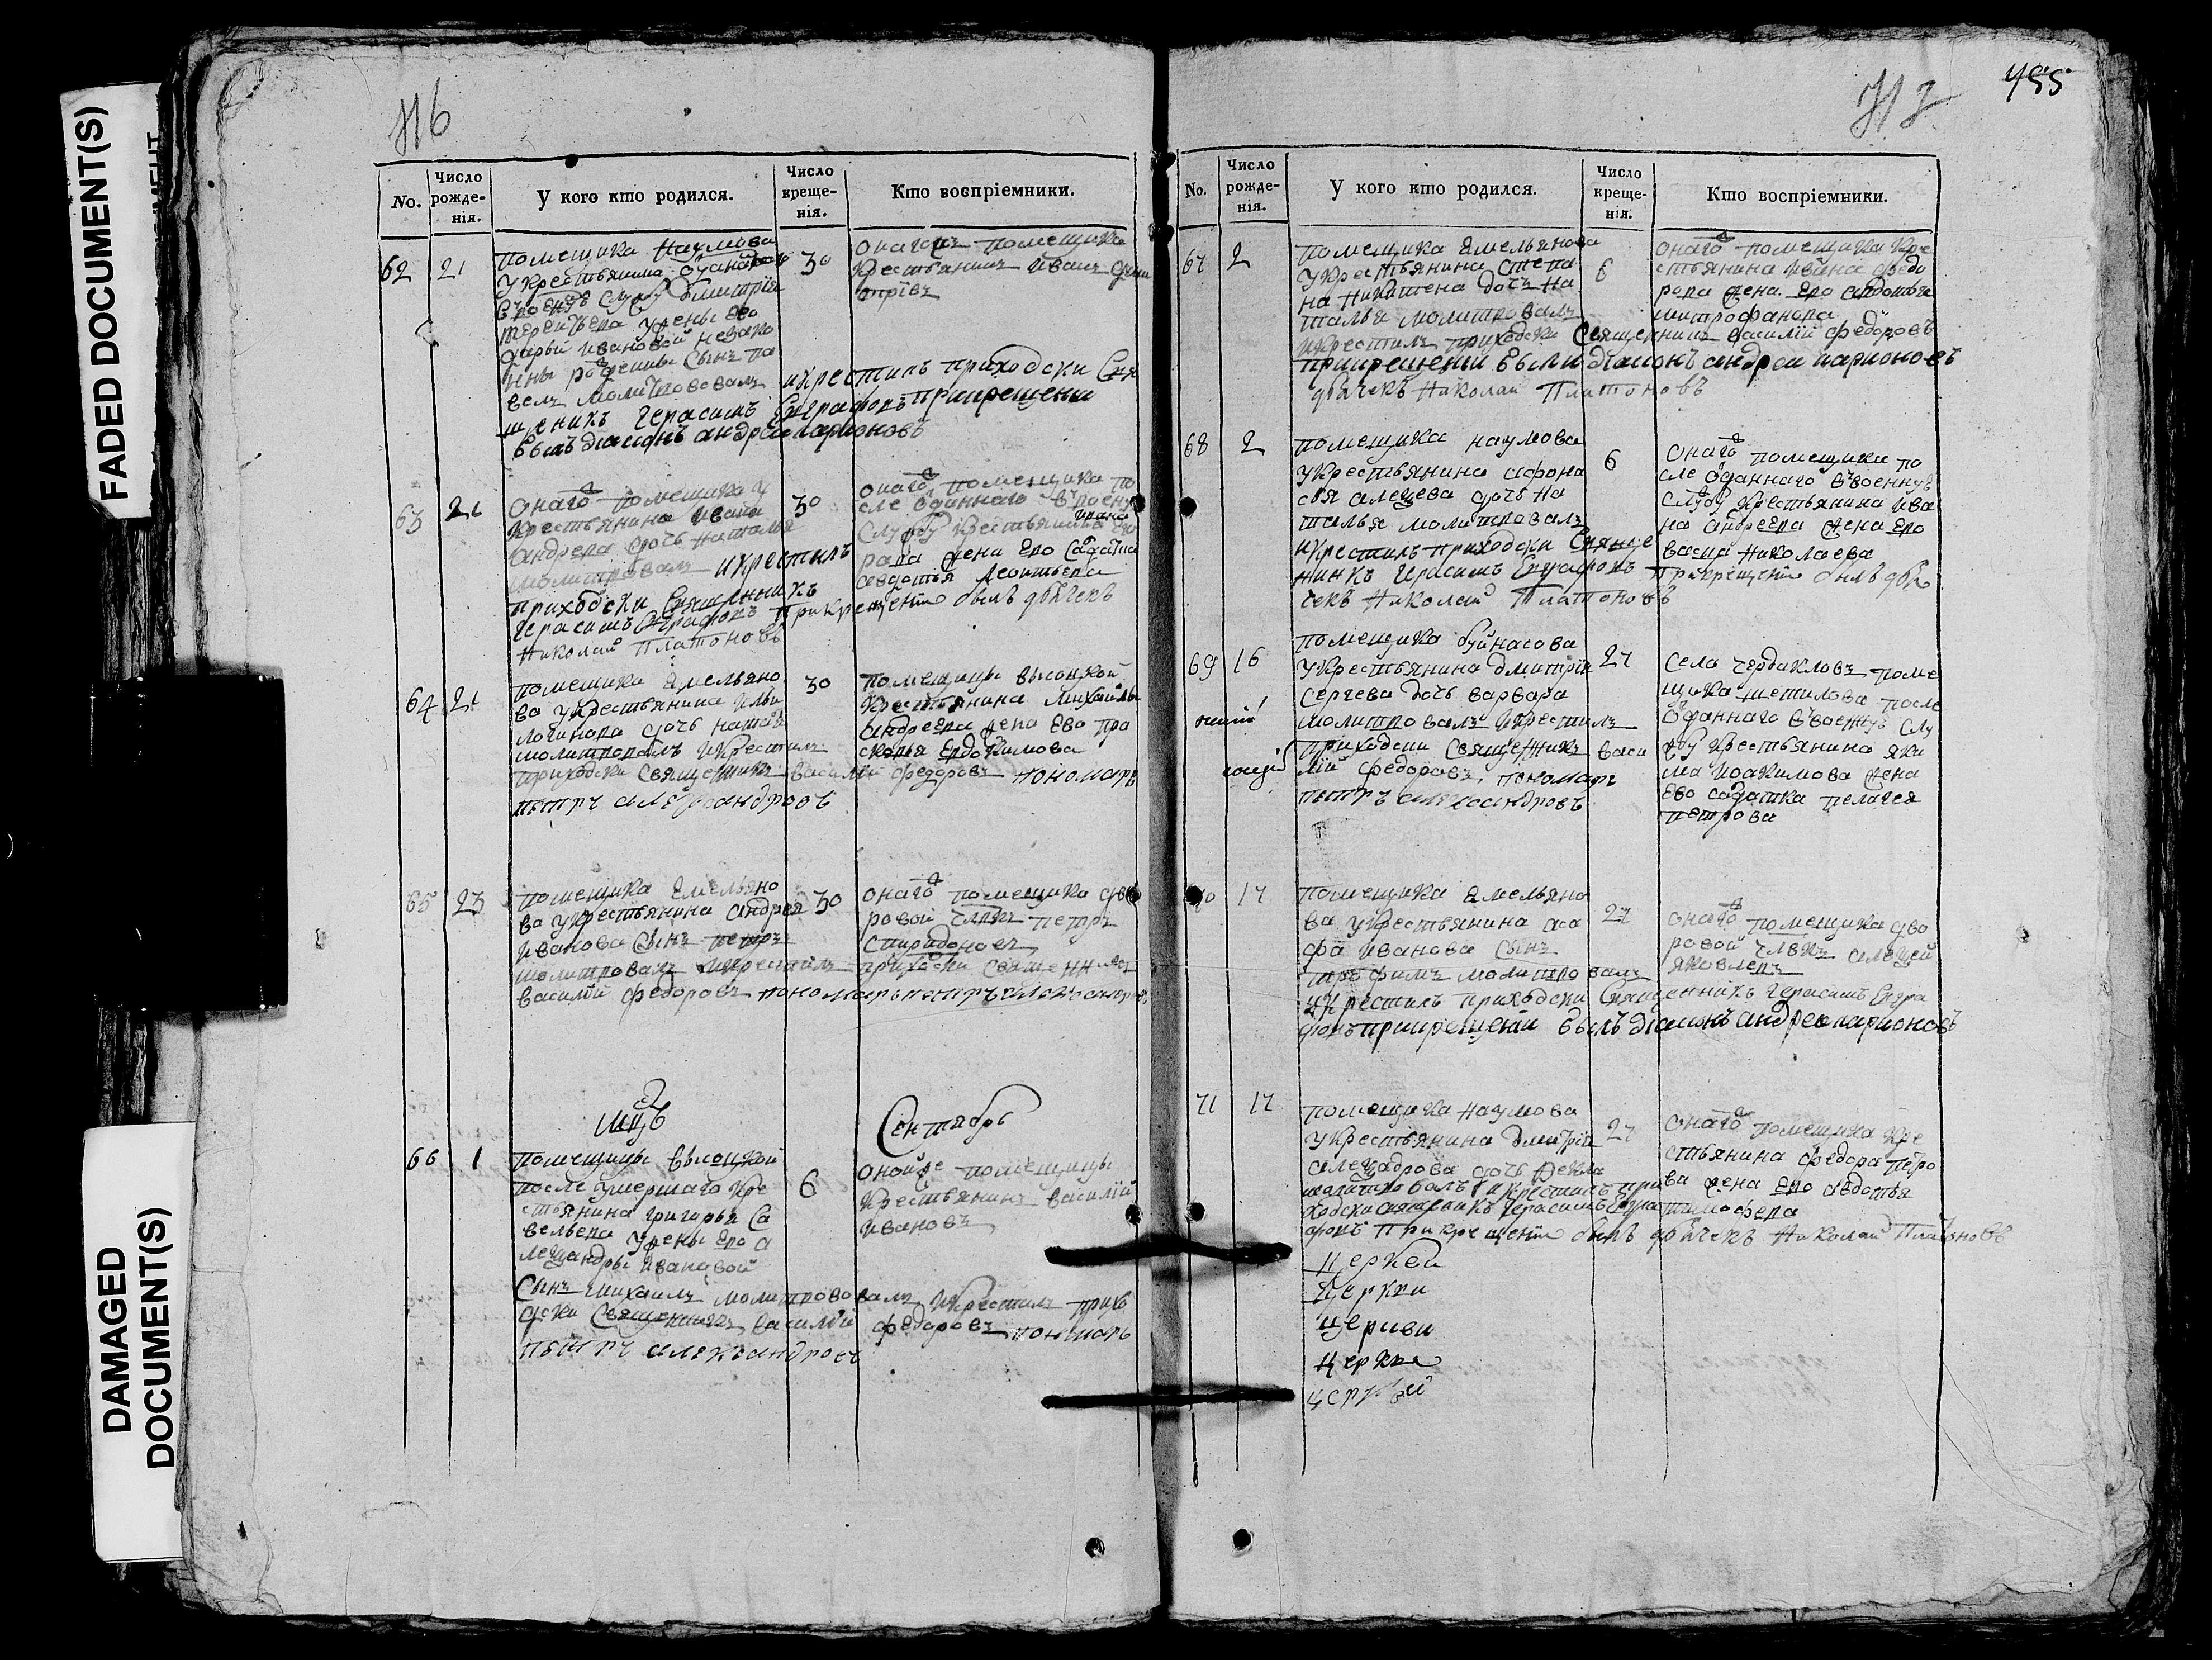 FADED DOCUMENT(S)
DAMAGED
DOCUMENT(S)
455
No.
Число
рожде-
нія.
У кого кто родился.
Число
креще-
нія.
Кто воспріемники.
62 21 30
помещика Наумова
укрестьянина
службу дмитрія
терентьева ужены ево
дарьи ивановой незако
нны рожденны сынъ па
велъ молитвовалъ икрестилъ приходски свя
щеникъ Герасимъ Евграфовъ прикрещени
былъ діаконъ андрей ларионовъ
помещика
крестьянинъ иванъ
63 21 30
онаго помещика у
крестьянина ивана
андрева дочь наталья
молитвовалъ икрестилъ
приходски священникъ
Герасимъ Евграфовъ прикрещеніи былъ дьячекъ
Николай Платоновъ
онаго помещика по
сле отданнаго ввоенну
службу крестьянина ивана
жена ево салдатка
авдотья леонтьева
64 21 30
помещика Емельяно
ва укрестьянина ильи
логинова дочь наталья
молитвовалъ икрестилъ
приходски священникъ василій федоровъ пономарь
петръ александровъ
помещицы высоцкой
крестьянина михайлы
андреева жена ево пра
сковья евдокимова
65 23 30
помещика Емельяно
ва укрестьянина андрея
иванова сынъ петръ
молитвовалъ икрестилъ приходски священникъ
василій федоровъ пономарь петръ александровъ
онаго помещика дво
ровой члвкъ петръ
спиридоновъ
мцъ Сентябрь
66 1 6
помещицы высоцкой
после умершаго кре
стьянина григорья са
вельева ужены ево а
лександры ивановой
сынъ михаилъ молитвовалъ икрестилъ прихо
дски священникъ василій федоровъ пономарь
петръ александровъ
оной же помещицы
крестьянинъ василій
ивановъ
No.
Число
рожде-
нія.
У кого кто родился.
Число
креще-
нія.
Кто воспріемники.
67 2 6
помещика Емельянова
укрестьянина степа
на никитена дочь на
талья молитвовалъ
икрестилъ приходски священникъ василій федоровъ
прикрещеніи были діаконъ андреи ларионовъ
дьячекъ Николай Платоновъ
онаго помещика кре
стьянина ивана федо
рова жена ево авдотья
митрофанова
68 2 6
помещика наумова
укрестьянина афона
сья алексева дочь на
талья молитвовалъ
икрестилъ приходски свяще
нникъ Герасимъ Евграфовъ прикрещеніи былъ дья
чекъ Николай Платоновъ
онаго помещика по
сле отданнаго ввоенную
службу крестьянина ива
на андреева жена ево
николаева
69 16 27
помещика буйнасова
укрестьянина дмитрія
сергева дочь варвара
молитвовалъ икрестилъ
приходски священникъ васи
лій федоровъ, пономарь
петръ александровъ
села чердакловъ поме
щика шетилова после
отданнаго ввоенную слу
жбу крестьянина яки
ма иоакимова жена
ево салдатка пелагея
петрова
70 17 27
помещика Емельяно
ва укрестьянина иса
фа иванова сынъ
трофимъ молитвовалъ
икрестилъ приходски священникъ Герасимъ Евгра
фовъ прикрещеніи былъ діаконъ андрей ларионовъ
онаго помещика дво
ровой члвкъ алексей
яковлевъ
71 17 27
помещика наумова
укрестьянина дмитрія
александрова дочь фекла
молитвовалъ икрестилъ при
ходски священникъ Герасимъ Евгра
фовъ прикрещеніи былъ дьячекъ Николай Платоновъ
онаго помещика кре
стьянина федора петро
ва жена ево авдотья
тимофева
церквей
церкви
церкви
церкви
церквей